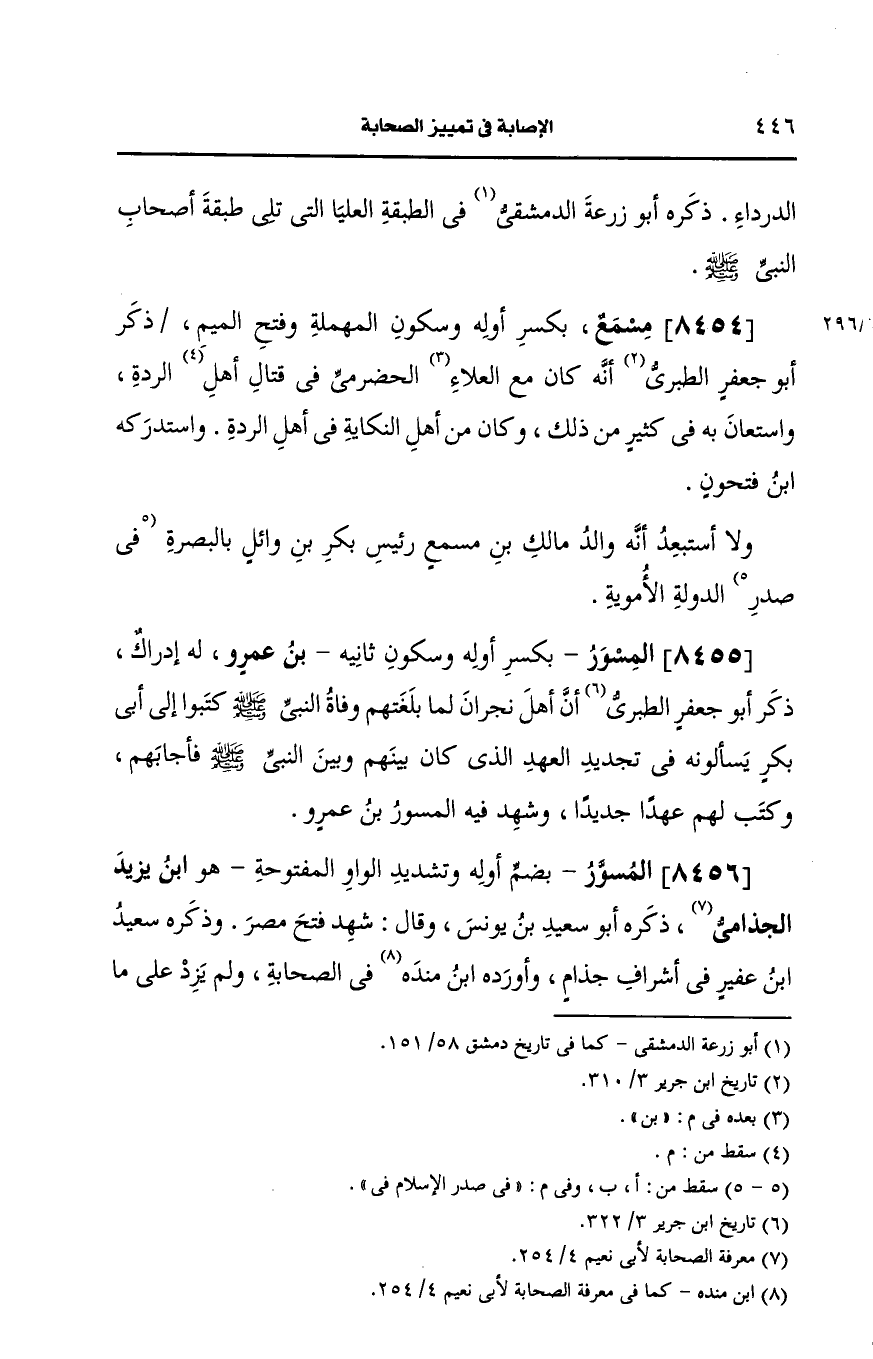 ٤٤٦ الإصابة فى تمييز الصحابة
الدرداءِ . ذكَره أبو زرعةَ الدمشقىُّ(١) فى الطبقةِ العليَا التى تلِى طبقةَ أصحابِ
النبىِّ ﷺ .
[٨٤٥٤] مِسْمَعٌ ، بكسرِ أولِه وسكونِ المهملةِ وفتحِ الميمِ ، / ذكَر
٢٩٦/
أبو جعفرٍ الطبرىُّ(٢) أنَّه كان مع العلاءِ(٣) الحضرمىِّ فى قتالِ أهلِ(٤) الردةِ ،
واستعانَ به فى كثيرٍ من ذلك ، وكان من أهلِ النكايةِ فى أهلِ الردةِ . واستدرَكه
ابنُ فتحونٍ .
ولا أستبعِدُ أنَّه والدُ مالكِ بنِ مسمعٍ رئيسِ بكرِ بنِ وائلٍ بالبصرةِ (٥فى
صدرِ٥) الدولةِ الأُمويةِ .
[٨٤٥٥] المِسْوَرُ – بكسرِ أولِه وسكونِ ثانِيه – بنُ عمرٍو ، له إدراكٌ ،
ذكَر أبو جعفرٍ الطبرىُّ(٦) أنَّ أهلَ نجرانَ لما بلَغَتهم وفاةُ النبىِّ ﷺ كتَبوا إلى أبى
بكرٍ يَسألونه فى تجديدِ العهدِ الذى كان بينَهم وبينَ النبىِّ ﷺ فأجابَهم ،
وكتَب لهم عهدًا جديدًا ، وشهِد فيه المسورُ بنُ عمرٍو .
[٨٤٥٦] المُسوَّرُ – بضمِّ أولِه وتشديدِ الواوِ المفتوحةِ – هو ابنُ يزيدَ
الجذامىُّ(٧) ، ذكَره أبو سعيدِ بنُ يونسَ ، وقال : شهِد فتحَ مصرَ . وذكَره سعيدُ
ابنُ عفيرٍ فى أشرافِ جذامٍ ، وأورَده ابنُ مندَه(٨) فى الصحابةِ ، ولم يَزِدْ على ما
(١) أبو زرعة الدمشقى – كما فى تاريخ دمشق ٥٨/ ١٥١.
(٢) تاريخ ابن جرير ٣/ ٣١٠.
(٣) بعده فى م : « بن » .
(٤) سقط من : م .
(٥ – ٥) سقط من : أ ، ب ، وفى م : « فى صدر الإسلام فى » .
(٦) تاريخ ابن جرير ٣/ ٣٢٢.
(٧) معرفة الصحابة لأبى نعيم ٤/ ٢٥٤.
(٨) ابن منده – كما فى معرفة الصحابة لأبى نعيم ٤/ ٢٥٤.